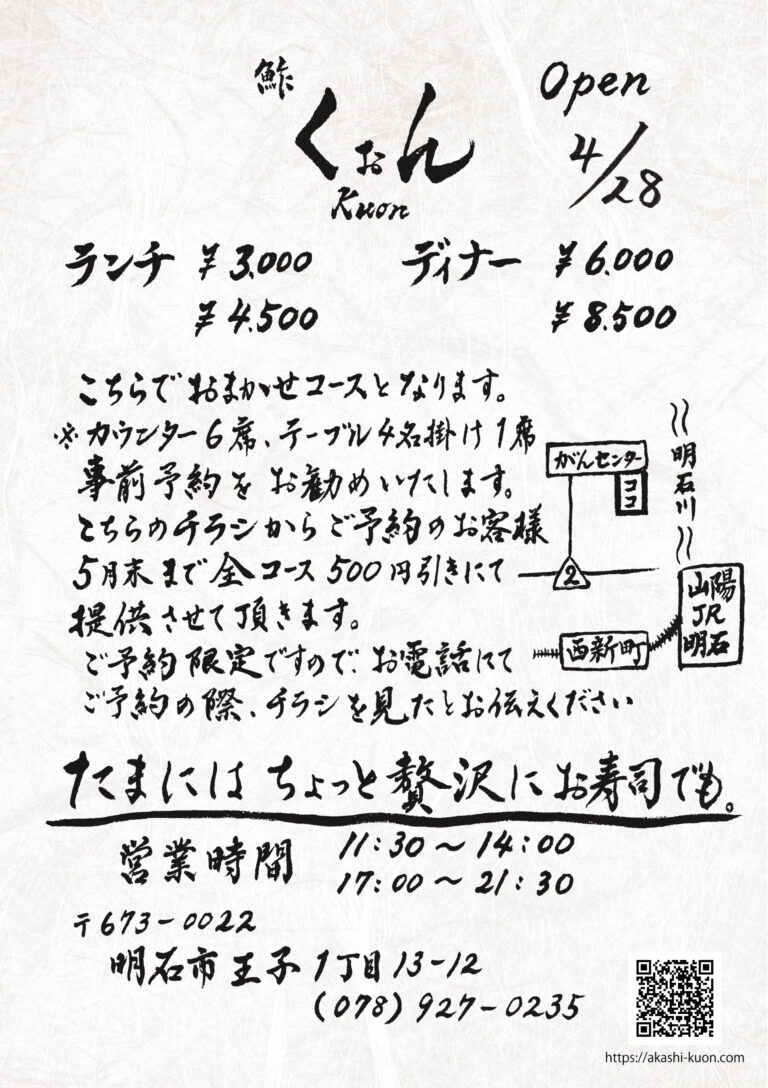 鮓
くおん
Kuon
Open
4/28
ランチ ¥3.000
¥4.500
ディナー ¥6.000
¥8.500
こちらでおまかせコースとなります。
※カウンター6席、テーブル4名掛け1席
事前予約をお勧めいたします。
こちらのチラシからご予約のお客様
5月末まで全コース500円引きにて
提供させて頂きます。
ご予約限定ですので、お電話にて
ご予約の際、チラシを見たとお伝えください
がんセンター
ココ
明石川
2
西新町
山陽
JR
明石
たまにはちょっと贅沢にお寿司でも。
営業時間 11:30~14:00
17:00~21:30
〒673-0022
明石市王子1丁目13-12
(078)927-0235
https://akashi-kuon.com